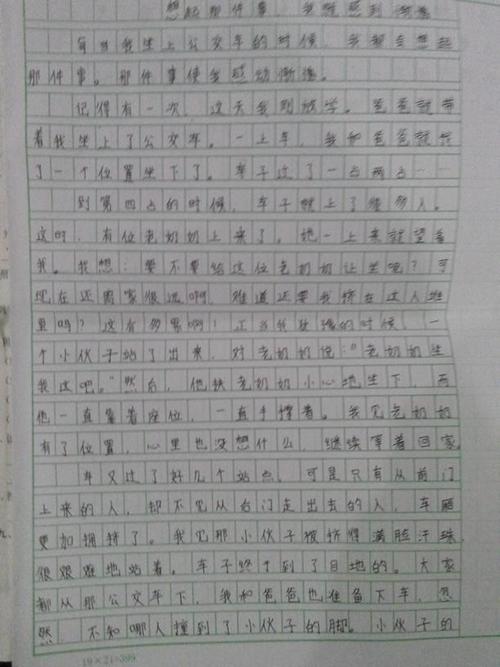 想起那件事,我就感到惭愧
每当我坐上公交车的时候,我都会想起
那件事。那件事使我感动惭愧。
记得有一次,这天我刚放学。爸爸就带
着我坐上了公交车。一上车,我和爸爸就找
了一个位置坐下了。车子过了一占两占……
到第四占的时候,车子就上了很多人。
这时,有位老奶奶上来了。她一上来就望着
我。我想:要不要给这位老奶奶让坐呢?可
现在还离家很远啊,难道还要我挤在这人堆
里吗?这有多累啊!正当我犹豫的时候,一
个小伙子站了出来,对老奶奶说:"老奶奶坐
我这吧。"然后,他扶老奶奶小心地坐下,而
他一直靠着座位,一直手撑着。我见老奶奶
有了位置,心里也没想什么,继续等着回家
车又过了好几个站点。可是只有从前门
上来的人,却不见从后门走出去的人,车厢
更加拥挤了。我见那小伙子被挤得满脸汗珠
很艰难地站着。车子终于到了目地的。大家
都从那公交车下,我和爸爸也准备下车,忽
然,不知哪人撞到了小伙子的脚。小伙子的
19×21=399